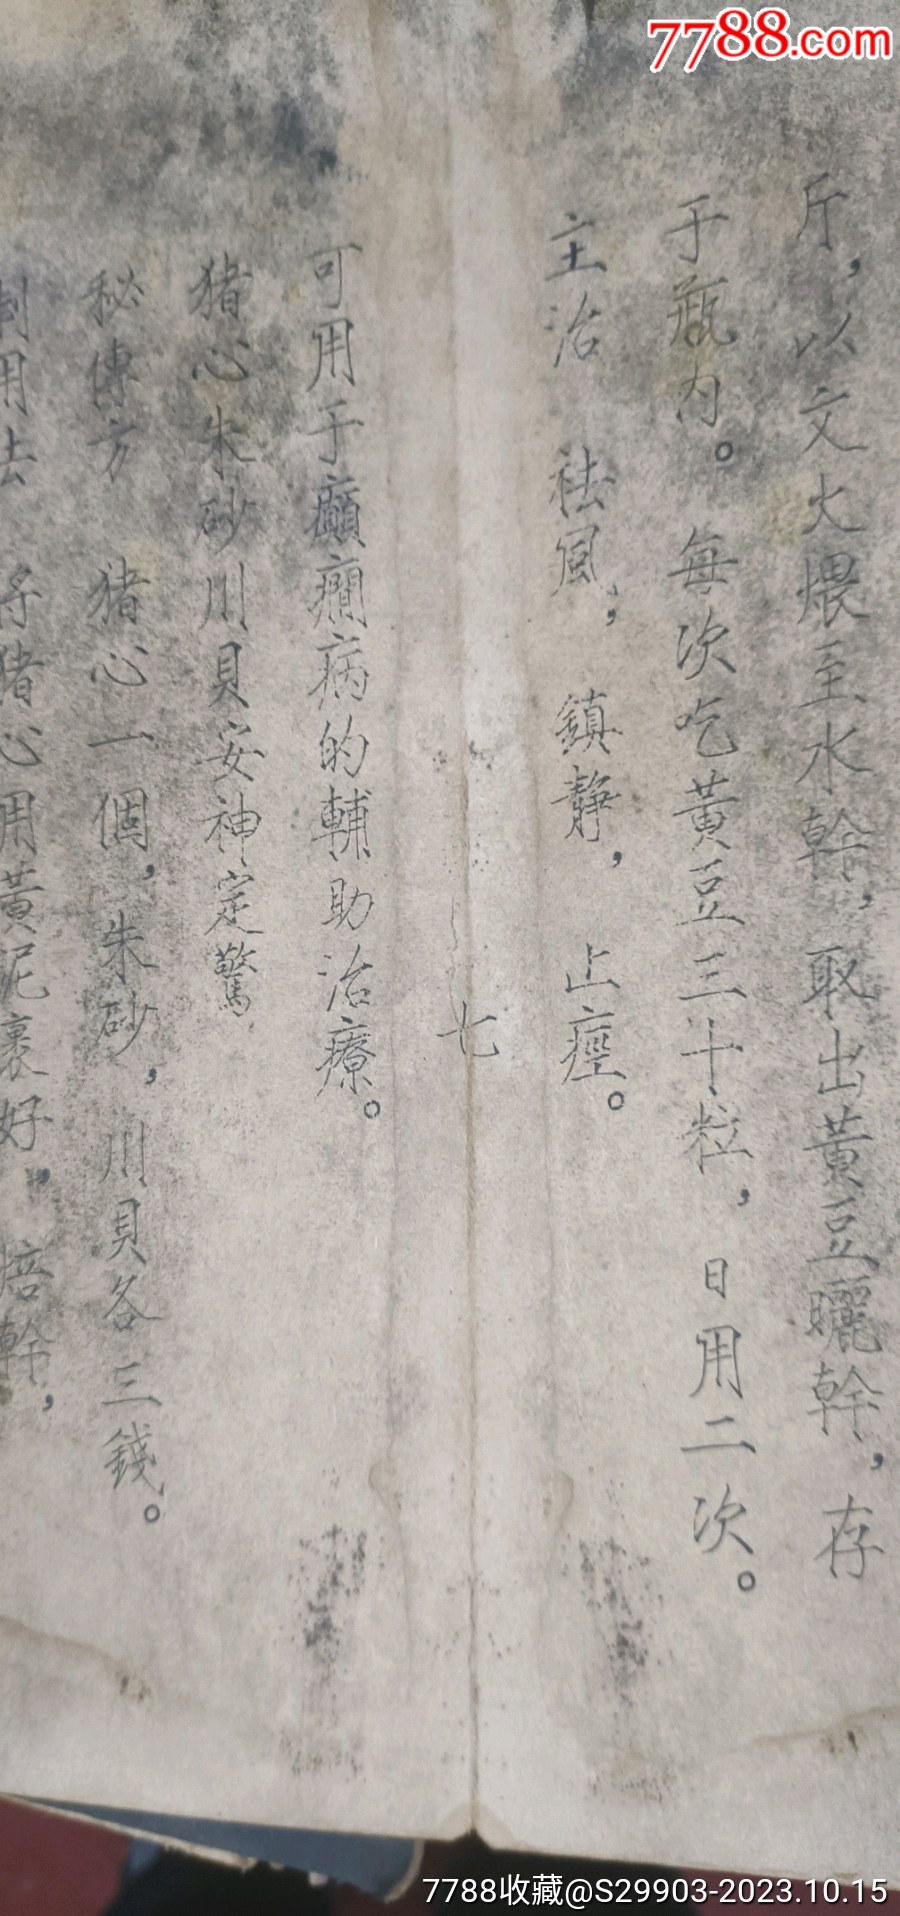 7788.com
斤，以文火煨至水幹，取出黃豆曬幹，存
于瓶内。每次吃黃豆三十粒，日用二次。
主治　祛風，鎮静，止痙。
七
可用于癲癇病的輔助治療。
猪心朱砂川貝安神定驚
秘傳方　猪心一個，朱砂，川貝各三錢。
制用法　將猪心用黃泥裹好，焙幹，
7788收藏@S29903-2023.10.15